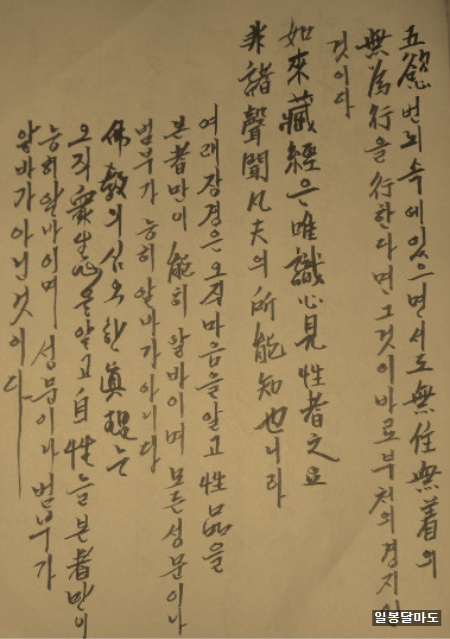 五慾번뇌속에있으면서도無住無着의
無為行을行한다면그것이바로부처의경지인
것이다
如來藏經은唯識心見性者之요
非諸聲聞凡夫의所能知也니라
여래장경은오직마음을알고性品을
본者만이能히알바이며모든성문이나
범부가능히알바가아니다
佛敎의심오한眞理는
오직衆生心을알고自性을본者만이
능히알바이며성문이나범부가
알바가아닌것이다
일봉달마도